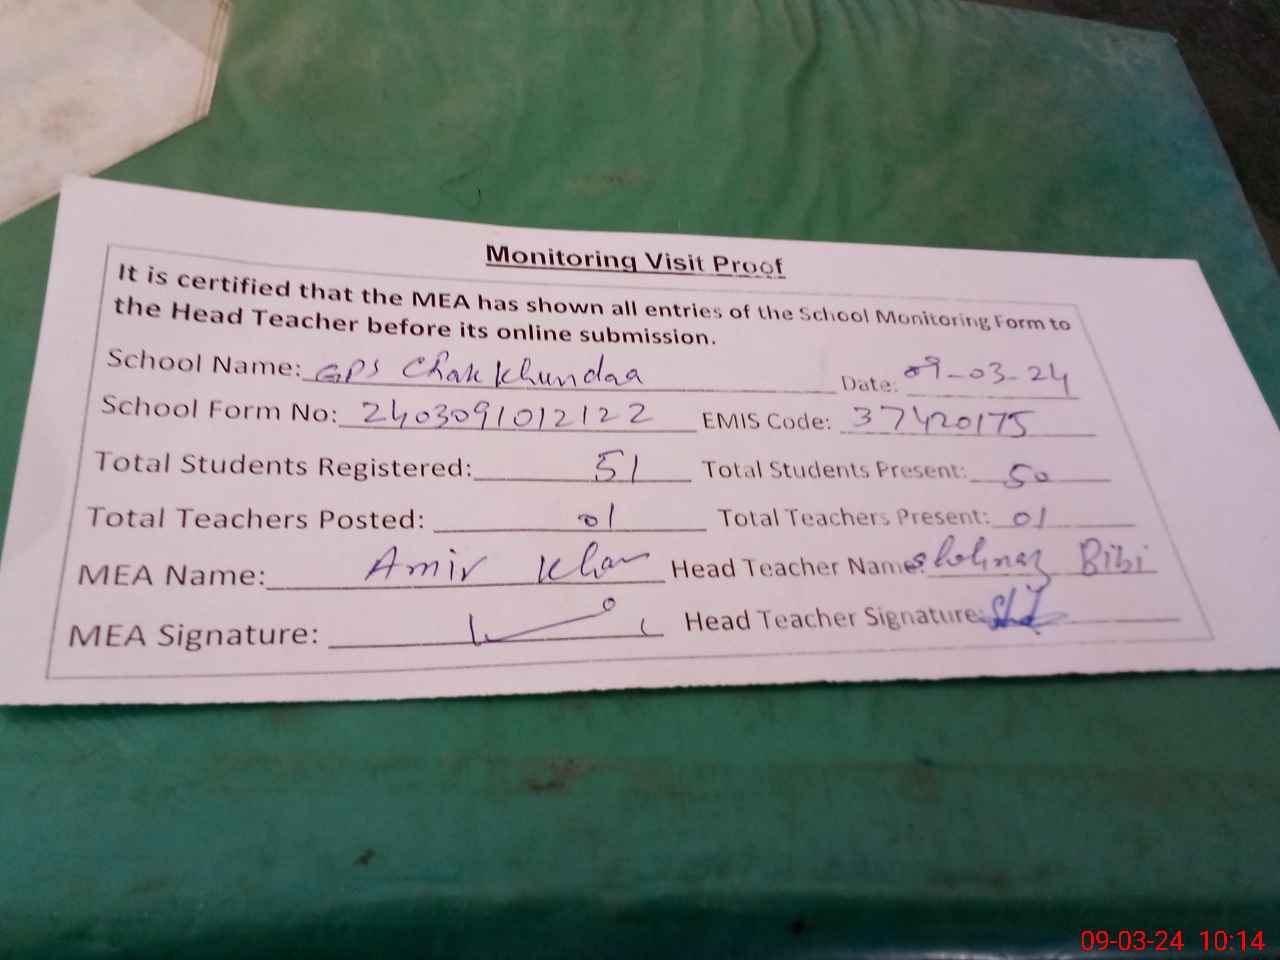 Monitoring Visit Proof
It is certified that the MEA has shown all entries of the School Monitoring Form to
the Head Teacher before its online submission.
School Name: GPS Chak Khundaa Date: 09-03-24
School Form No: 2403091012122 EMIS Code: 37420175
Total Students Registered: 51 Total Students Present: 50
Total Teachers Posted: 01 Total Teachers Present: 01
MEA Name: Amir Khan Head Teacher Name: Bibi
MEA Signature: Head Teacher Signature:
09-03-24 10:14